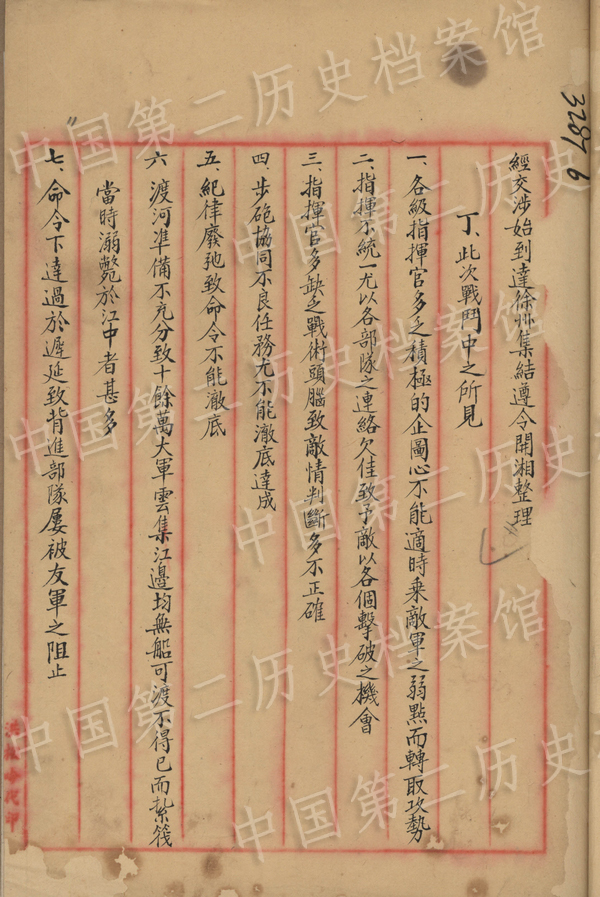 3287 6
經交涉始到達徐州集結遵令開湘整理
丁、此次戰鬥中之所見
一、各級指揮官多乏積極的企圖心不能適時乘敵軍之弱點而轉取攻勢
二、指揮不統一尤以各部隊之連絡欠佳致予敵以各個擊破之機會
三、指揮官多缺乏戰術頭腦致敵情判斷多不正確
四、步砲協同不良任務尤不能澈底達成
五、紀律廢弛致命令不能澈底
六、渡河準備不充分致十餘萬大軍雲集江邊均無船可渡不得已而紮筏
當時溺斃於江中者甚多
七、命令下達過於遲延致背進部隊屢被友軍之阻止
中国第二历史档案馆
中国第二历史档案馆
中国第二历史档案馆
中国第二历史档案馆
中国第二历史档案馆
中国第二历史档案馆